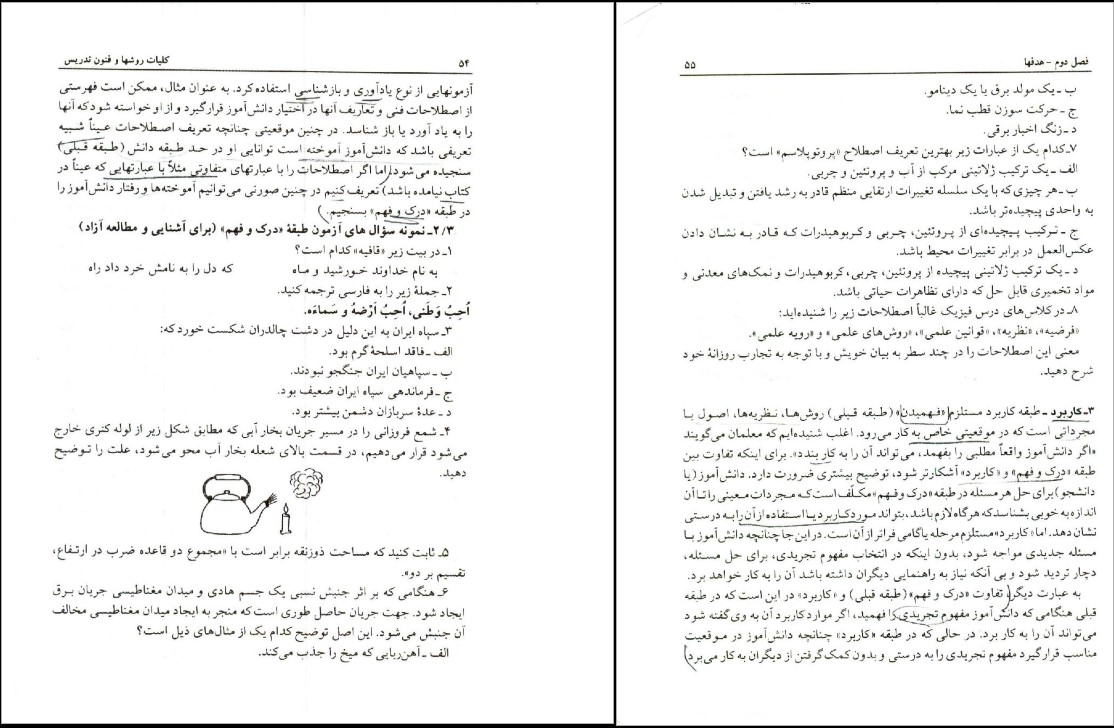 ۵۴ کلیات روشها و فنون تدریس
آزمونهایی از نوع یادآوری و بازشناسی استفاده کرد. به عنوان مثال، ممکن است فهرستی
از اصطلاحات فنی و تعاریف آنها در اختیار دانش‌آموز قرار گیرد و از او خواسته شود که آنها
را به یاد آورد یا باز شناسد. در چنین موقعیتی چنانچه تعریف اصطلاحات عیناً شبیه
تعریفی باشد که دانش‌آموز آموخته است توانایی او در حد طبقه دانش (طبقه قبلی)
سنجیده می‌شود، اما اگر اصطلاحات را با عبارتهای متفاوتی مثلاً با عبارتهایی که عیناً در
کتاب نیامده باشد) تعریف کنیم در چنین صورتی می‌توانیم آموخته‌ها و رفتار دانش‌آموز را
در طبقه «درک و فهم» بسنجیم.
۲/۳ـ نمونه سؤال های آزمون طبقهٔ «درک و فهم» (برای آشنایی و مطالعه آزاد)
۱ـ در بیت زیر «قافیه» کدام است؟
به نام خداوند خورشید و ماه که دل را به نامش خرد داد راه
۲ـ جملهٔ زیر را به فارسی ترجمه کنید.
اُحِبُ وَطَنی، اُحِبُ اَرْضهُ و سَماءَه.
۳ـ سپاه ایران به این دلیل در دشت چالدران شکست خورد که:
الف ـ فاقد اسلحهٔ گرم بود.
ب ـ سپاهیان ایران جنگجو نبودند.
ج ـ فرماندهی سپاه ایران ضعیف بود.
د ـ عدهٔ سربازان دشمن بیشتر بود.
۴ـ شمع فروزانی را در مسیر جریان بخار آبی که مطابق شکل زیر از لوله کتری خارج
می‌شود قرار می‌دهیم، در قسمت بالای شعله بخار آب محو می‌شود، علت را توضیح
دهید.
۵ـ ثابت کنید که مساحت ذوزنقه برابر است با «مجموع دو قاعده ضرب در ارتفاع،
تقسیم بر دو».
۶ـ هنگامی که بر اثر جنبش نسبی یک جسم هادی و میدان مغناطیسی جریان برق
ایجاد شود. جهت جریان حاصل طوری است که منجر به ایجاد میدان مغناطیسی مخالف
آن جنبش می‌شود. این اصل توضیح کدام یک از مثال‌های ذیل است؟
الف ـ آهن‌ربایی که میخ را جذب می‌کند.
فصل دوم - هدفها ۵۵
ب ـ یک مولد برق یا یک دینامو.
ج ـ حرکت سوزن قطب نما.
د ـ زنگ اخبار برقی.
۷ـ کدام یک از عبارات زیر بهترین تعریف اصطلاح «پروتوپلاسم» است؟
الف ـ یک ترکیب ژلاتینی مرکب از آب و پروتئین و چربی.
ب ـ هر چیزی که با یک سلسله تغییرات ارتقایی منظم قادر به رشد یافتن و تبدیل شدن
به واحدی پیچیده‌تر باشد.
ج ـ ترکیب پیچیده‌ای از پروتئین، چربی و کربوهیدرات که قادر به نشان دادن
عکس‌العمل در برابر تغییرات محیط باشد.
د ـ یک ترکیب ژلاتینی پیچیده از پروتئین، چربی، کربوهیدرات و نمک‌های معدنی و
مواد تخمیری قابل حل که دارای تظاهرات حیاتی باشد.
۸ـ در کلاس‌های درس فیزیک غالباً اصطلاحات زیر را شنیده‌اید:
«فرضیه»، «نظریه»، «قوانین علمی»، «روش‌های علمی» و «رویه علمی».
معنی این اصطلاحات را در چند سطر به بیان خویش و با توجه به تجارب روزانهٔ خود
شرح دهید.
۳ـ کاربرد ـ طبقه کاربرد مستلزم «فهمیدن» (طبقه قبلی) روش‌ها، نظریه‌ها، اصول یا
مجرداتی است که در موقعیتی خاص به کار می‌رود. اغلب شنیده‌ایم که معلمان می‌گویند
«اگر دانش‌آموز واقعاً مطلبی را بفهمد، می‌تواند آن را به کار بندد». برای اینکه تفاوت بین
طبقه «درک و فهم» و «کاربرد» آشکارتر شود، توضیح بیشتری ضرورت دارد. دانش‌آموز (یا
دانشجو) برای حل هر مسئله در طبقه «درک و فهم» مکلّف است که مجردات معینی را تا آن
اندازه به خوبی بشناسد که هرگاه لازم باشد، بتواند مورد کاربرد یا استفاده از آن را به درستی
نشان دهد. اما «کاربرد» مستلزم مرحله یا گامی فراتر از آن است. در این جا چنانچه دانش‌آموز با
مسئله جدیدی مواجه شود، بدون اینکه در انتخاب مفهوم تجریدی، برای حل مسئله،
دچار تردید شود و بی آنکه نیاز به راهنمایی دیگران داشته باشد آن را به کار خواهد برد.
به عبارت دیگر تفاوت «درک و فهم» (طبقه قبلی) و «کاربرد» در این است که در طبقه
قبلی هنگامی که دانش‌آموز مفهوم تجریدی را فهمید، اگر موارد کاربرد آن به وی گفته شود
می‌تواند آن را به کار برد. در حالی که در طبقه «کاربرد» چنانچه دانش‌آموز در موقعیت
مناسب قرار گیرد مفهوم تجریدی را به درستی و بدون کمک گرفتن از دیگران به کار می‌برد